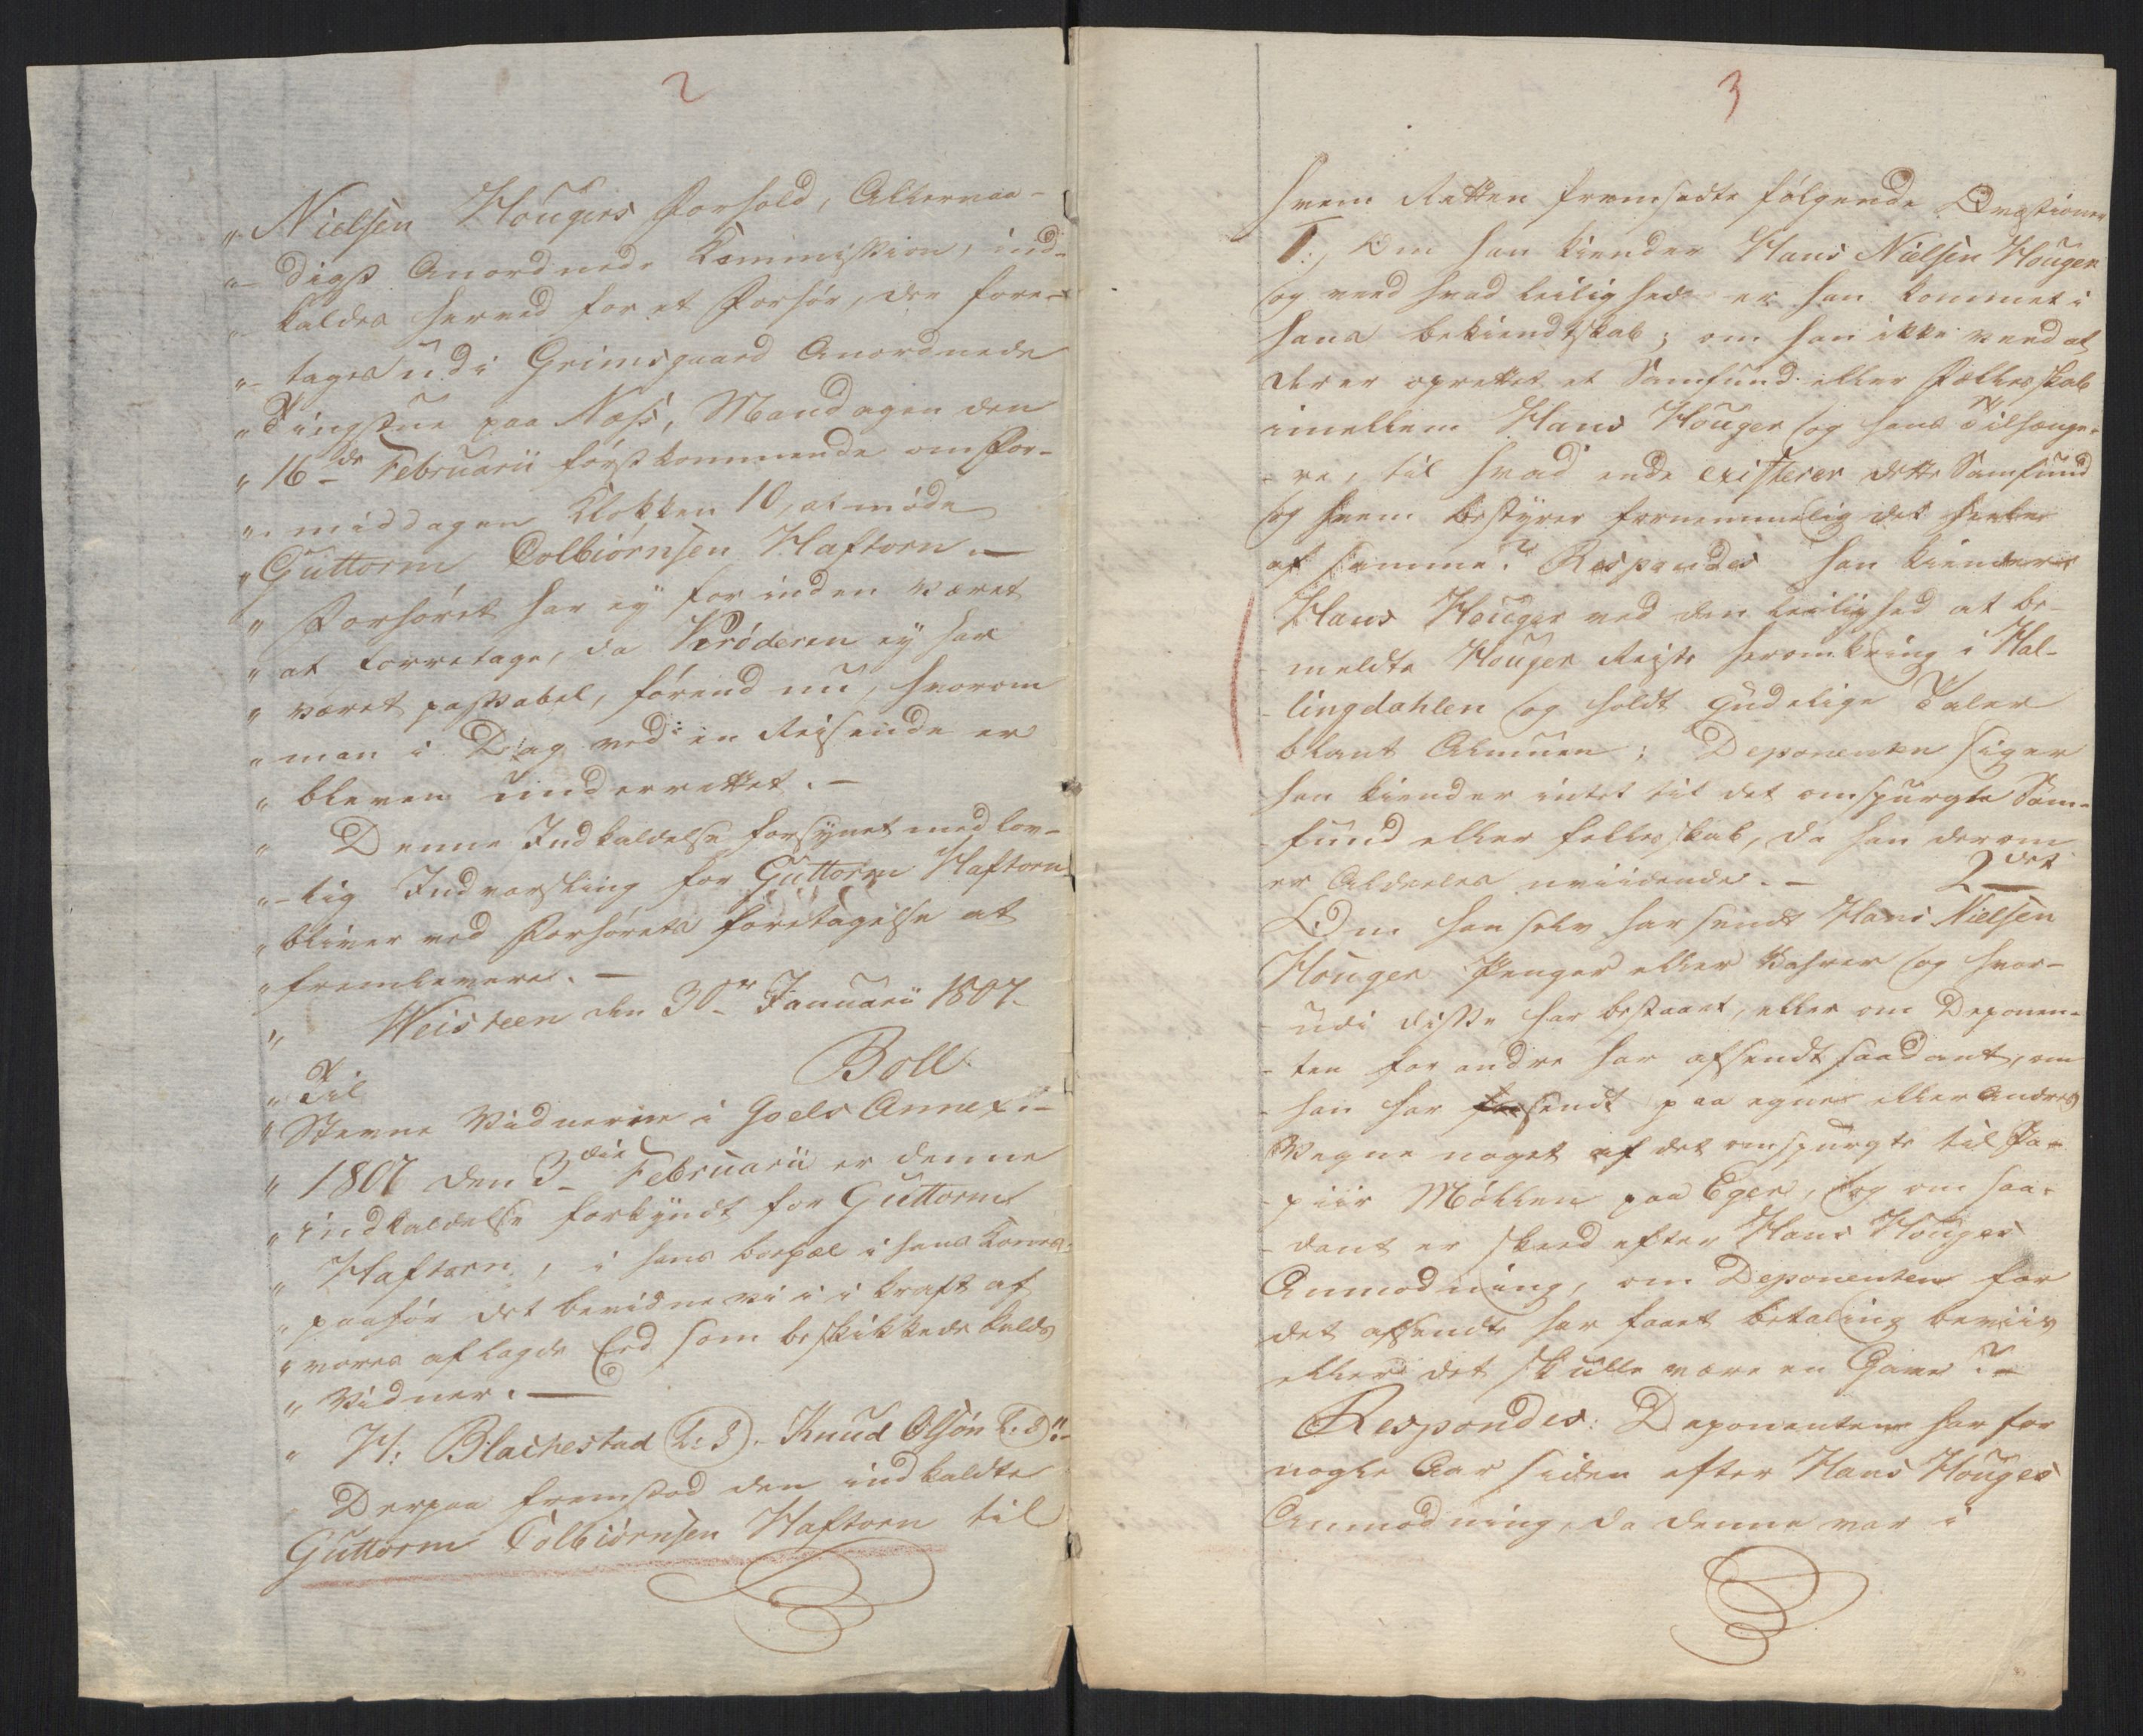 2
„ Nielsen Hougers Forhold, Allernaa-
„- digst Anordnede Kommission, ind-
„ kaldes herved for et Forhør, der fore-
„- tages udi Grimsgaard Anordnede
„ Tingstue paa Næss, Mandagen den
„ 16de Februarii førstkommende om For-
„- middagen Klokken 10, at møde
„ Guttorm Tolbiørnsen Haftorn. —
„ Forhøret har ey forinden været
„ at forretage, da Krøderen ey har
„ været passabel, førend nu, hvorom
„ man i Dag ved en Reisende er
„ bleven underrettet. -
„ Denne Indkaldelse forsynet med lov-
„- lig Indvarsling for Guttorm Haftorn
„ bliver ved Forhørets foretagelse at
„ fremlevere. —
„ Weisteen den 30te Januarii 1807.
Boll.
„ Til
„ Stevne Vidnerne i Goels Annex: -
„ 1807 den 3die Februarii er denne
„ indkaldelse forkyndt for Guttorm
„ Haftorn, i hans boepæl i hans Kones
„ paahør det bevidne vi i kraft af
„ vores aflagde Eed som beskikkede kalds
„ Vidner. —
„ H: Blachestad (L:S). Knud Olsøn (L:S):-
Derpaa fremstod den indkaldte
Guttorm Tolbiørnsen Haftorn til
3
hvem Retten fremsadte følgende Qvæstioner
1:, Om han kiender Hans Nielsen Houger
og ved hvad leilighed er han kommet i
hans bekiendtskab; om han ikke veed at
der er oprettet et Samfund eller Fællesskab
imellem Hans Houger og hans Tilhænge-
- re, til hvad ende existerer dette Samfund
og hvem bestyrer fornemmelig det heele
af samme? Respondes han kiender
Hans Houger ved den leilighed at be-
meldte Houger Reiste heromkring i Hal-
- lingdahlen og holdt gudelige Taler
blant Almuen; Deponenten siger
han kiender intet til det omspurgte Sam-
- fund eller fellesskab, da han derom
er Aldeeles uviidende. - 2det
Om han selv har sendt Hans Nielsen
Houger Penger eller Vahrer og hvor-
udi disse har bestaaet, eller om Deponen-
- ten for andre har afsendt saadant, om
- han har sendt paa egne eller Andres
Vegne noget af det omspurgte til Pa-
- piir Møllen paa Eger, og om saa-
- dant er skeed efter Hans Hougers
Anmodning, om Deponenten for
det afsendte har faaet betaling beviis
eller det skulle være en Gave? -
Respondes: Deponenten har for
nogle Aar siden efter Hans Houges
Anmodning, da denne var i